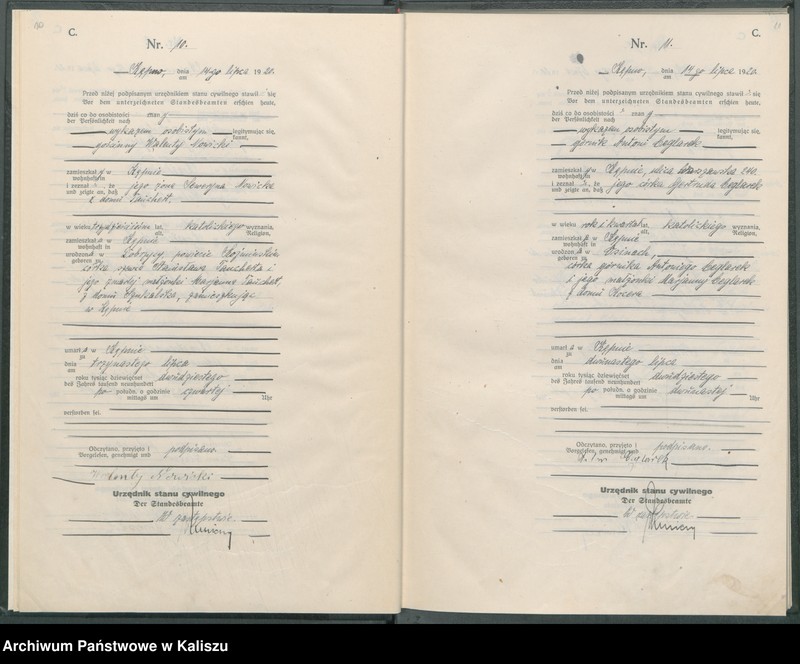 C.
Nr. 10.
Kępno, dnia 14-go lipca 1920.
am
Przed niżej podpisanym urzędnikiem stanu cywilnego stawił się
Vor dem unterzeichneten Standesbeamten erschien heute,
dziś co do osobistości znany
der Persönlichkeit nach
wykazem osobistym legitymując się,
kannt,
Walenty Nowicki
zamieszkały w Kępnie
wohnhaft in
i zeznał, że jego żona Seweryna Nowicka
und zeigte an, daß
z domu
w wieku lat, katolickiego wyznania,
alt, Religion,
zamieszkała w Kępnie
wohnhaft in
urodzona w Kobrycy, powiecie
geboren zu
córka Stanisława i
jego małżonki Marjanny
z domu zamieszkując
w Kępnie
umarła w Kępnie
zu
dnia trzynastego lipca
am
roku tysiąc dziewięćset dwudziestego
des Jahres tausend neunhundert
po połudn. o godzinie czwartej
mittags um Uhr
verstorben sei.
Odczytano, przyjęto i podpisano.
Vorgelesen, genehmigt und
Walenty Nowicki
Urzędnik stanu cywilnego
Der Standesbeamte
W zastępstwie.
11
C.
Nr. 11.
Kępno, dnia 14-go lipca 1920.
am
Przed niżej podpisanym urzędnikiem stanu cywilnego stawił się
Vor dem unterzeichneten Standesbeamten erschien heute,
dziś co do osobistości znany
der Persönlichkeit nach
wykazem osobistym legitymując się,
kannt,
górnik Antoni Ceglarek
zamieszkały w Kępnie, ulica Warszawska 240.
wohnhaft in
i zeznał, że jego córka Gertruda Ceglarek
und zeigte an, daß
w wieku rok i kwartał lat, katolickiego wyznania,
alt, Religion,
zamieszkała w Kępnie
wohnhaft in
urodzona w
geboren zu
córka górnika Antoniego Ceglarek
i jego małżonki Marjanny Ceglarek
z domu Kocera
umarła w Kępnie
zu
dnia dwunastego lipca
am
roku tysiąc dziewięćset dwudziestego
des Jahres tausend neunhundert
po połudn. o godzinie dwunastej
mittags um Uhr
verstorben sei.
Odczytano, przyjęto i podpisano.
Vorgelesen, genehmigt und
Urzędnik stanu cywilnego
Der Standesbeamte
W zastępstwie
Archiwum Państwowe w Kaliszu